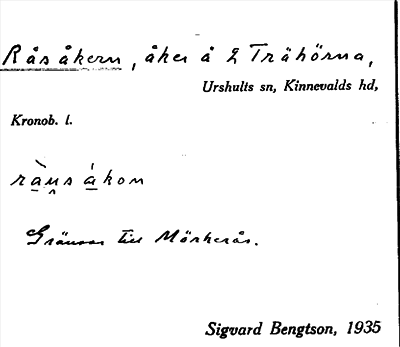 Råsåkern, åker å 2 Trähörna,
Urshults sn, Kinnevalds hd,
Kronob. l.
ràu̯s ákon
Gränsar till Mörkerås.
Sigvard Bengtson, 1935